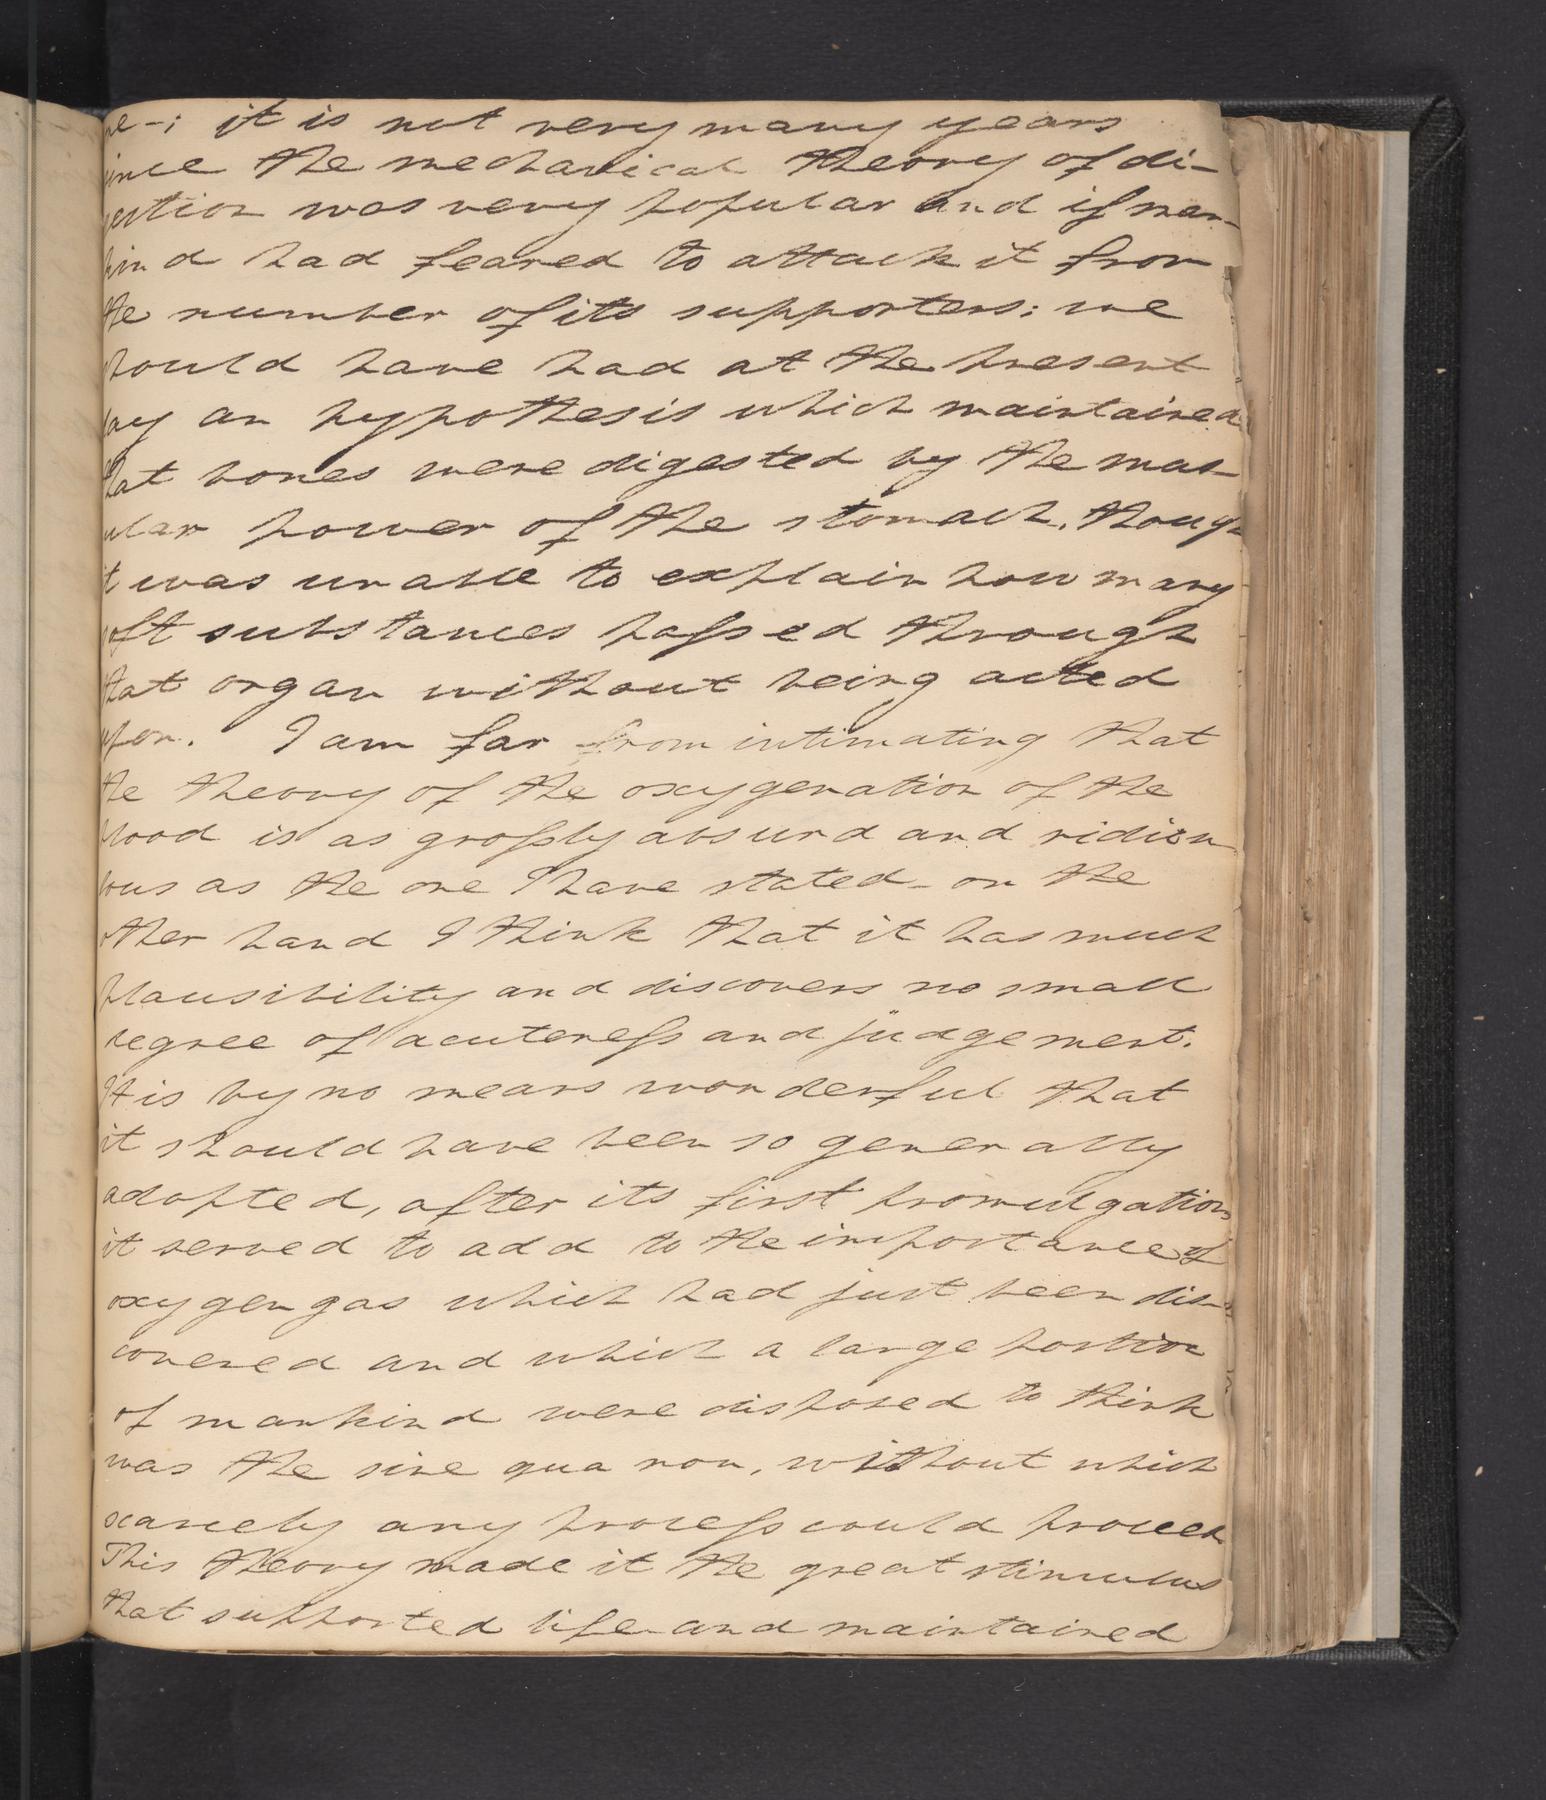 ne-; it is not very many years
since the mechanical theory of di-
gestion was very popular and if man-
kind had feared to attack it from
the number of its supporters; we
should have had at the present
day an hypothesis which maintained
that bones were digested by the mus-
cular power of the stomach, though
it was unable to explain how many
soft substances passed through
that organ without being acted
upon. I am far from intimating that
the theory of the oxygenation of the
blood is as grossly absurd and ridicu-
lous as the one I have stated - on the
other hand I think that it has much
plausibility and discovers no small
degree of acuteness and judgement.
It is by no means wonderful that
it should have been so generally
adopted, after its first promulgation
it served to add to the importance of
oxygen gas which had just been dis-
covered and which a large portion
of mankind were disposed to think
was the sine qua non, without which
scarcely any process could proceed.
This theory made it the great stimulus
that supported life and maintained